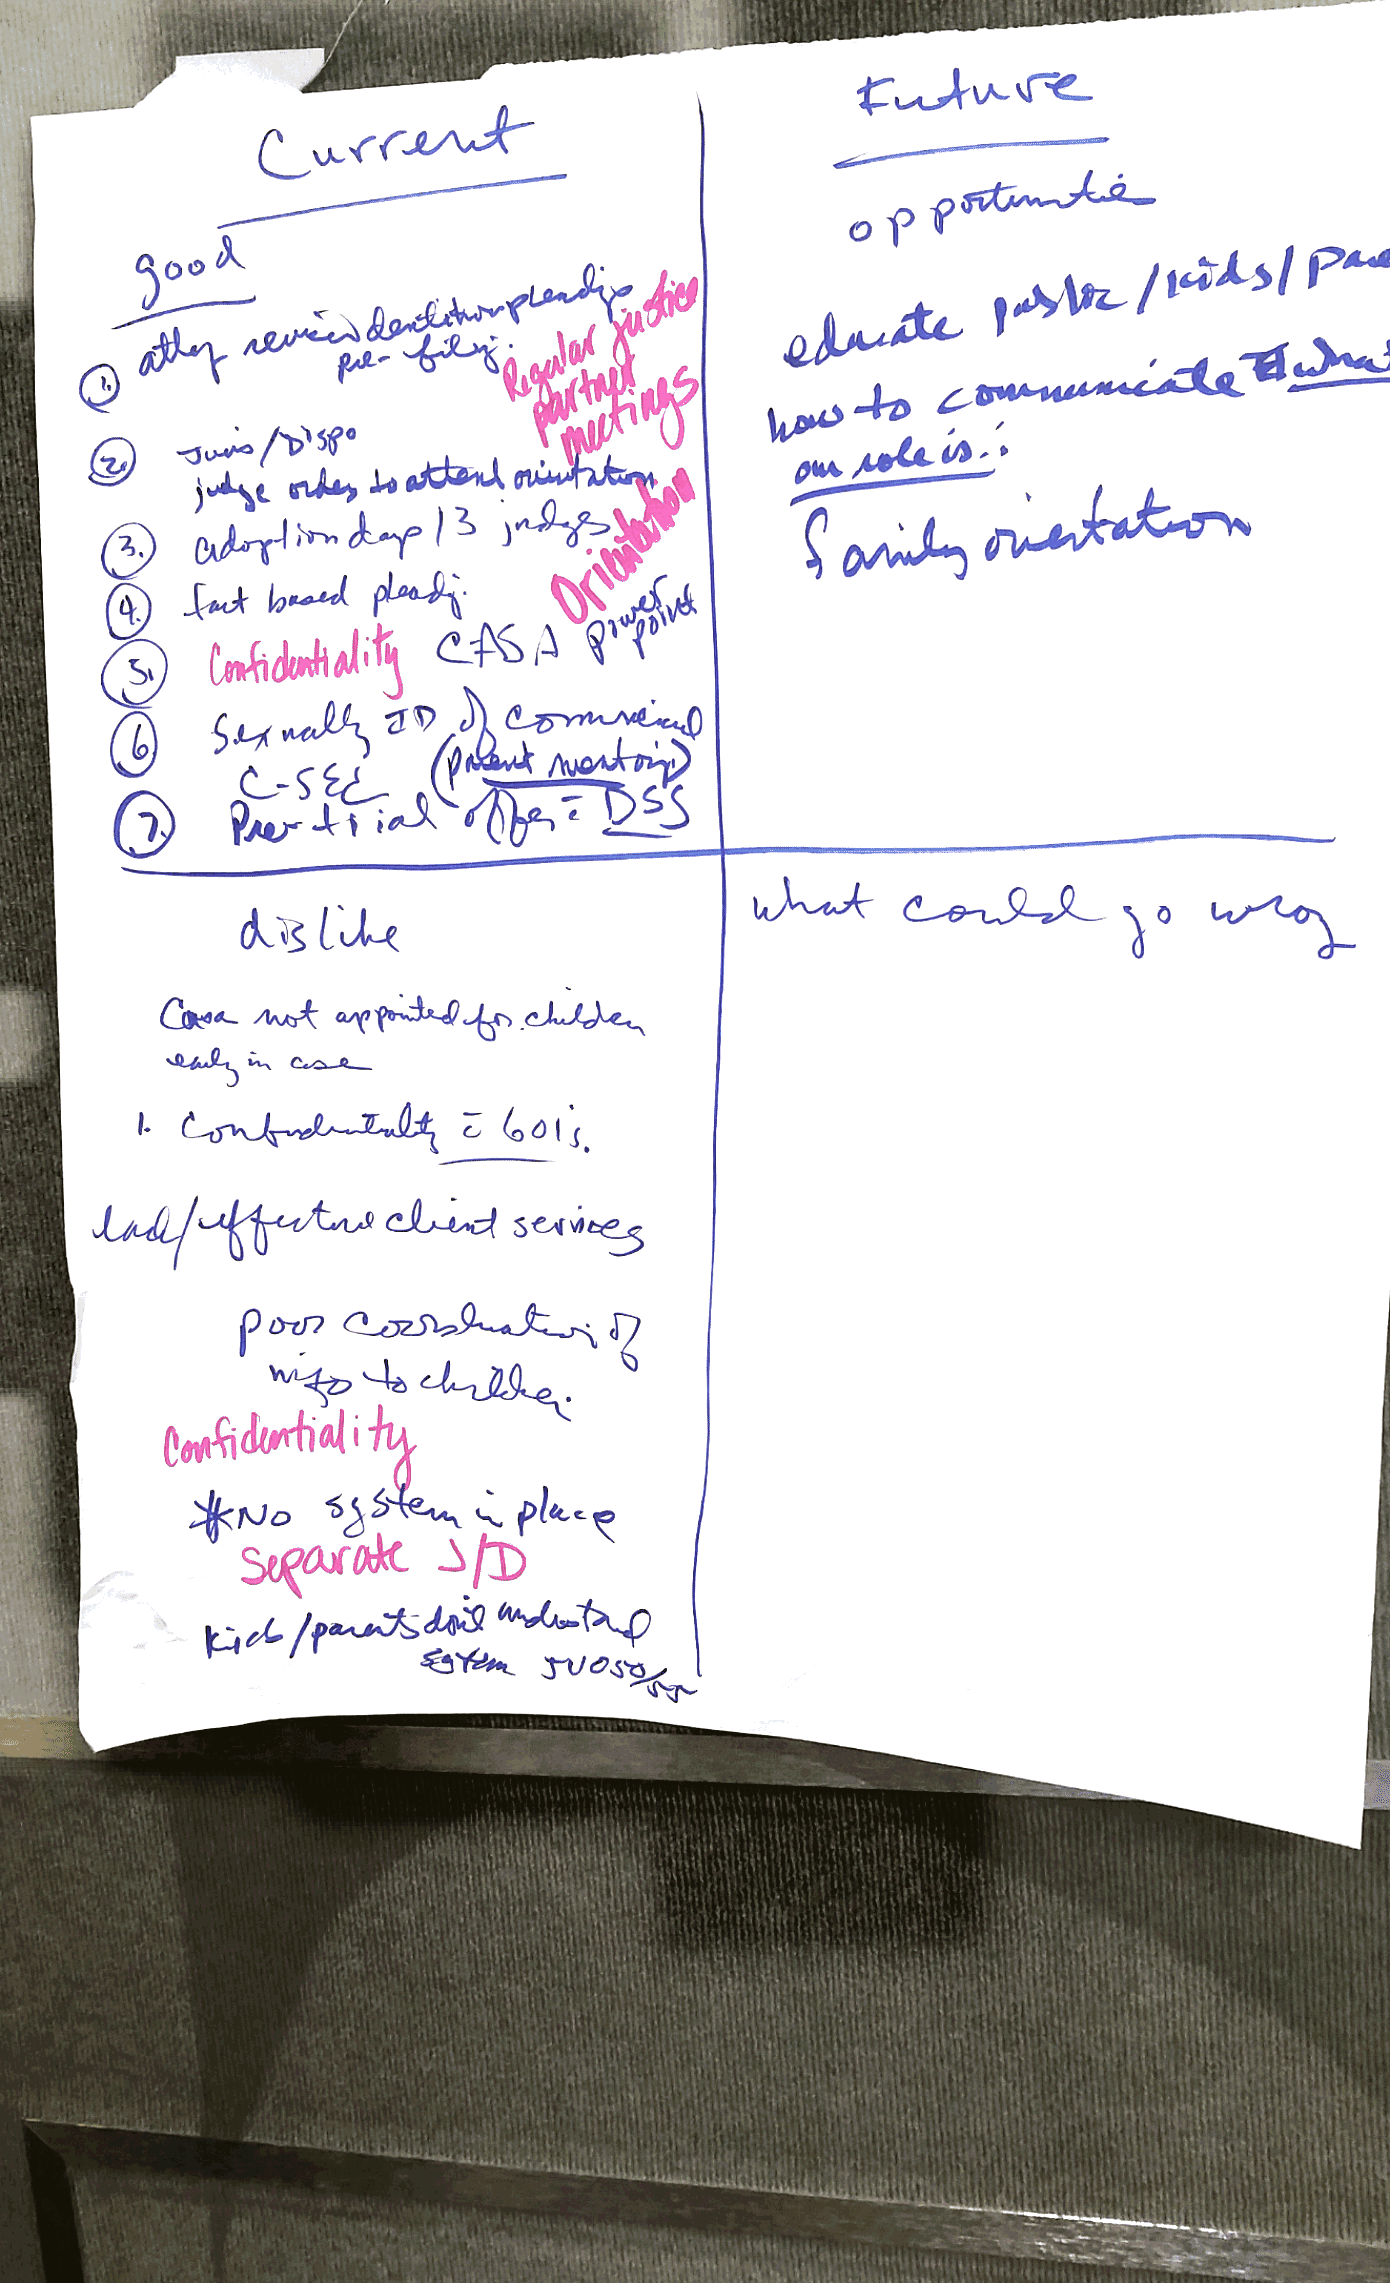 Current
good
1. atty review detention pleadings
pre-filing.
Regular justice
partner
meetings
2. Juris/Dispo
judge orders to attend orientation
Orientation
3. adoption days / 3 judges
4. fact based pleadg.
5. Confidentiality CASA power
point
6 Sexually ID of commercial
C-SEC (parent mentoring)
7. Pre-trial offer c̄ DSS
dislike
Casa not appointed for children
early in case
1. Confidentiality c̄ 601's.
lack/effective client services
poor coordination of
info to children.
Confidentiality
*No system in place
Separate J/D
kids/parents don't understand
system JV050/55
Future
opportunitie
educate public/kids/pare
how to communicate what
our role is:
family orientation
what could go wrog